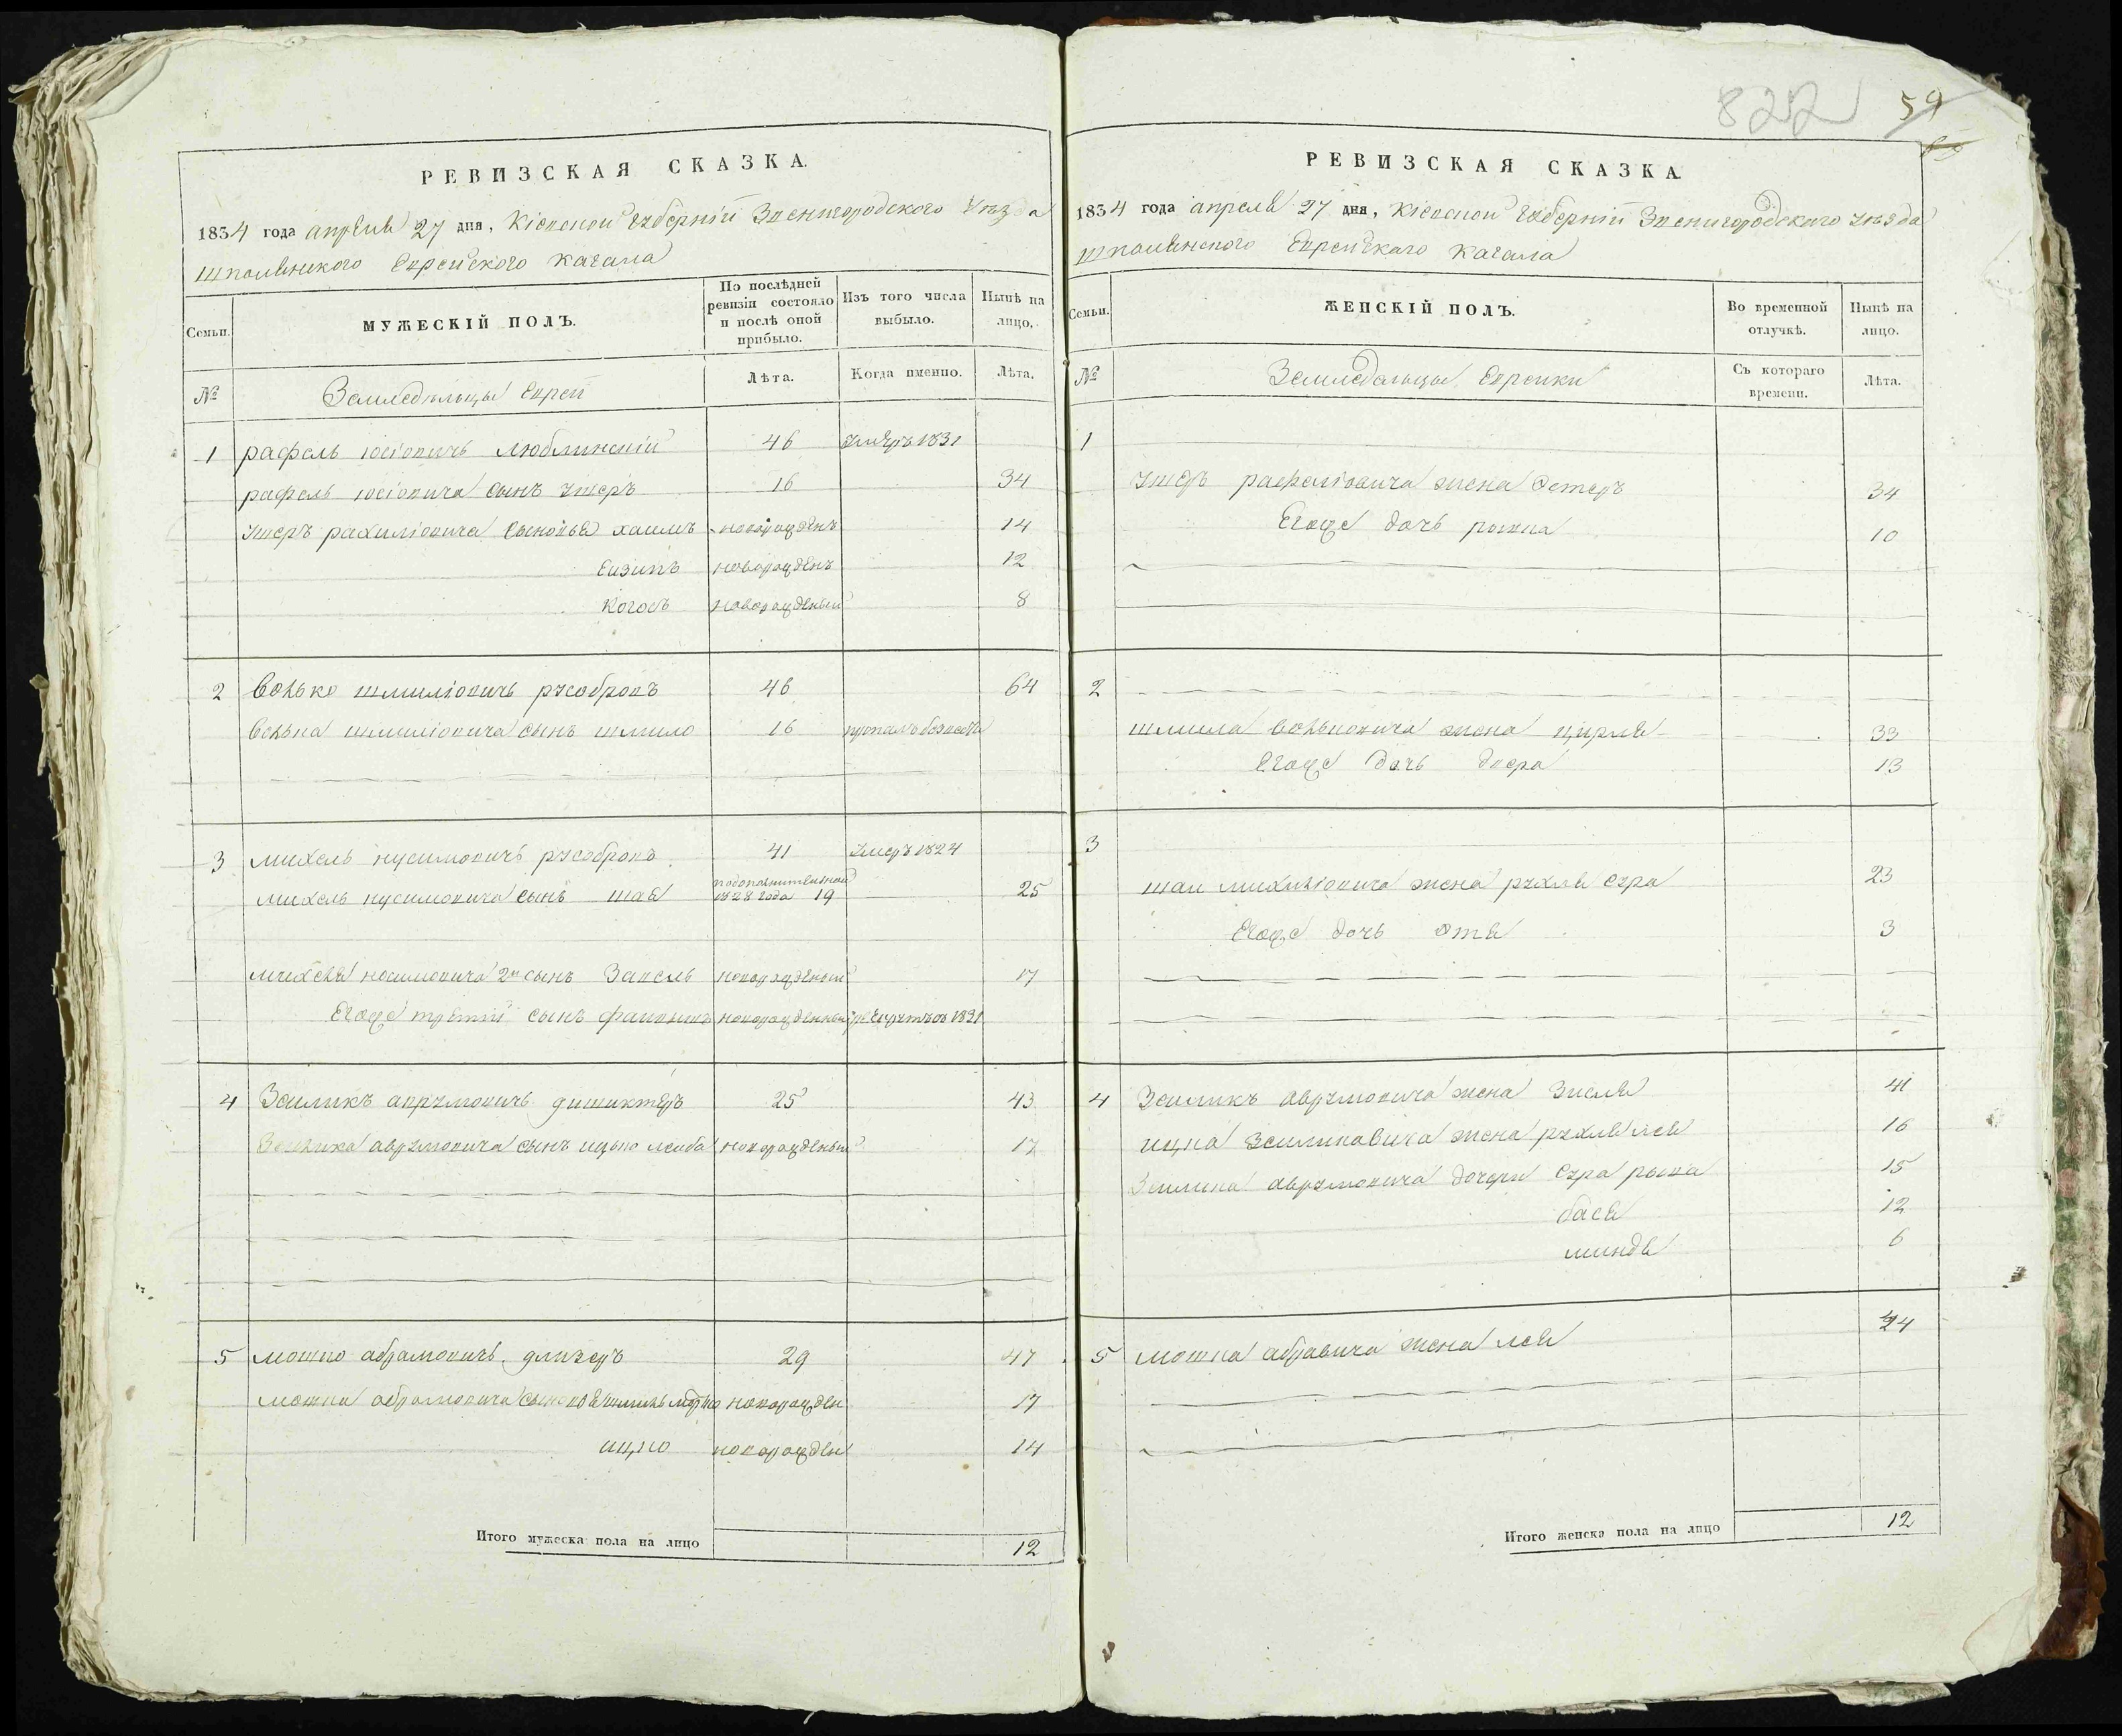 РЕВИЗСКАЯ СКАЗКА.
1834 года апреля 27 дня, Кіевской Губерніи Звенигородского Уезда
шполянского Еврейского кагала
Семьи.
МУЖЕСКІЙ ПОЛЪ.
По послѣдней ревизіи состояло и послѣ оной прибыло.
Изъ того числа выбыло.
Нынѣ на лицо.
№
Земледельцы Евреи
Лѣта.
Когда именно.
Лѣта.
1 рафель юсіовичъ люблинскій 46 умеръ 1831
рафель юсіовича сынъ ушеръ 16 34
ушеръ рахиліовича сыновья хаимъ новорожденъ 14
новорожденъ 12
новорожденый 8
2 волько шмиліовичъ русобровъ 46 64
волька шмиліовича сынъ шмило 16
3 михель нусимовичъ русобровъ 41 умеръ 1824
михель нусимовича сынъ шая 1828 года 19 25
2й сынъ новорожденый 17
Егоже третій сынъ новорожденый 1831
4 Зеиликъ аврумовичъ 25 43
аврумовича сынъ ицько леиба новорожденый 17
5 мошко абрамовичъ 29 47
мошка абрамовича новорожден 17
ицко новорожден 14
Итого мужеска пола на лицо 12
822 59
РЕВИЗСКАЯ СКАЗКА.
1834 года апреля 27 дня, Кіевской Губерніи Звенигородского уезда
шполянского Еврейскаго кагала
Семьи.
ЖЕНСКІЙ ПОЛЪ.
Во временной отлучкѣ.
Нынѣ на лицо.
№
Земледельцы Еврейки
Съ котораго времени.
Лѣта.
1
ушеръ рафеліовича жена Эстеръ 34
Егоже дочь рывка 10
2
шмила вольковича жена цирля 33
Егоже дочь двера 13
3
шаи михиліовича жена рухля сура 23
Егоже дочь этя 3
4 Зеиликъ аврумовича жена Зисля 41
ицка зеиликовича жена рухля лея 16
аврумовича дочери сура рывка 15
бася 12
миндя 6
5 мошка абравича жена лея 24
Итого женска пола на лицо 12